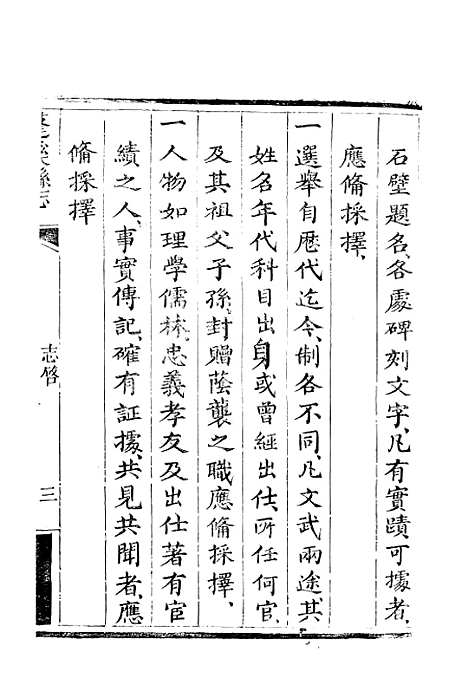 石壁題名、各處碑刻文字、凡有實蹟可據者、
應脩採擇、
一選舉自歷代迄今、制各不同、凡文武兩途、其
姓名年代科目出身、或曾經出仕、所任何官、
及其祖父子孫、封贈蔭襲之職、應脩採擇、
一人物如理學儒林、忠義孝友及出仕著有宦
績之人、事實傳記、確有証據、共見共聞者、應
脩採擇
縣志
志啓
三